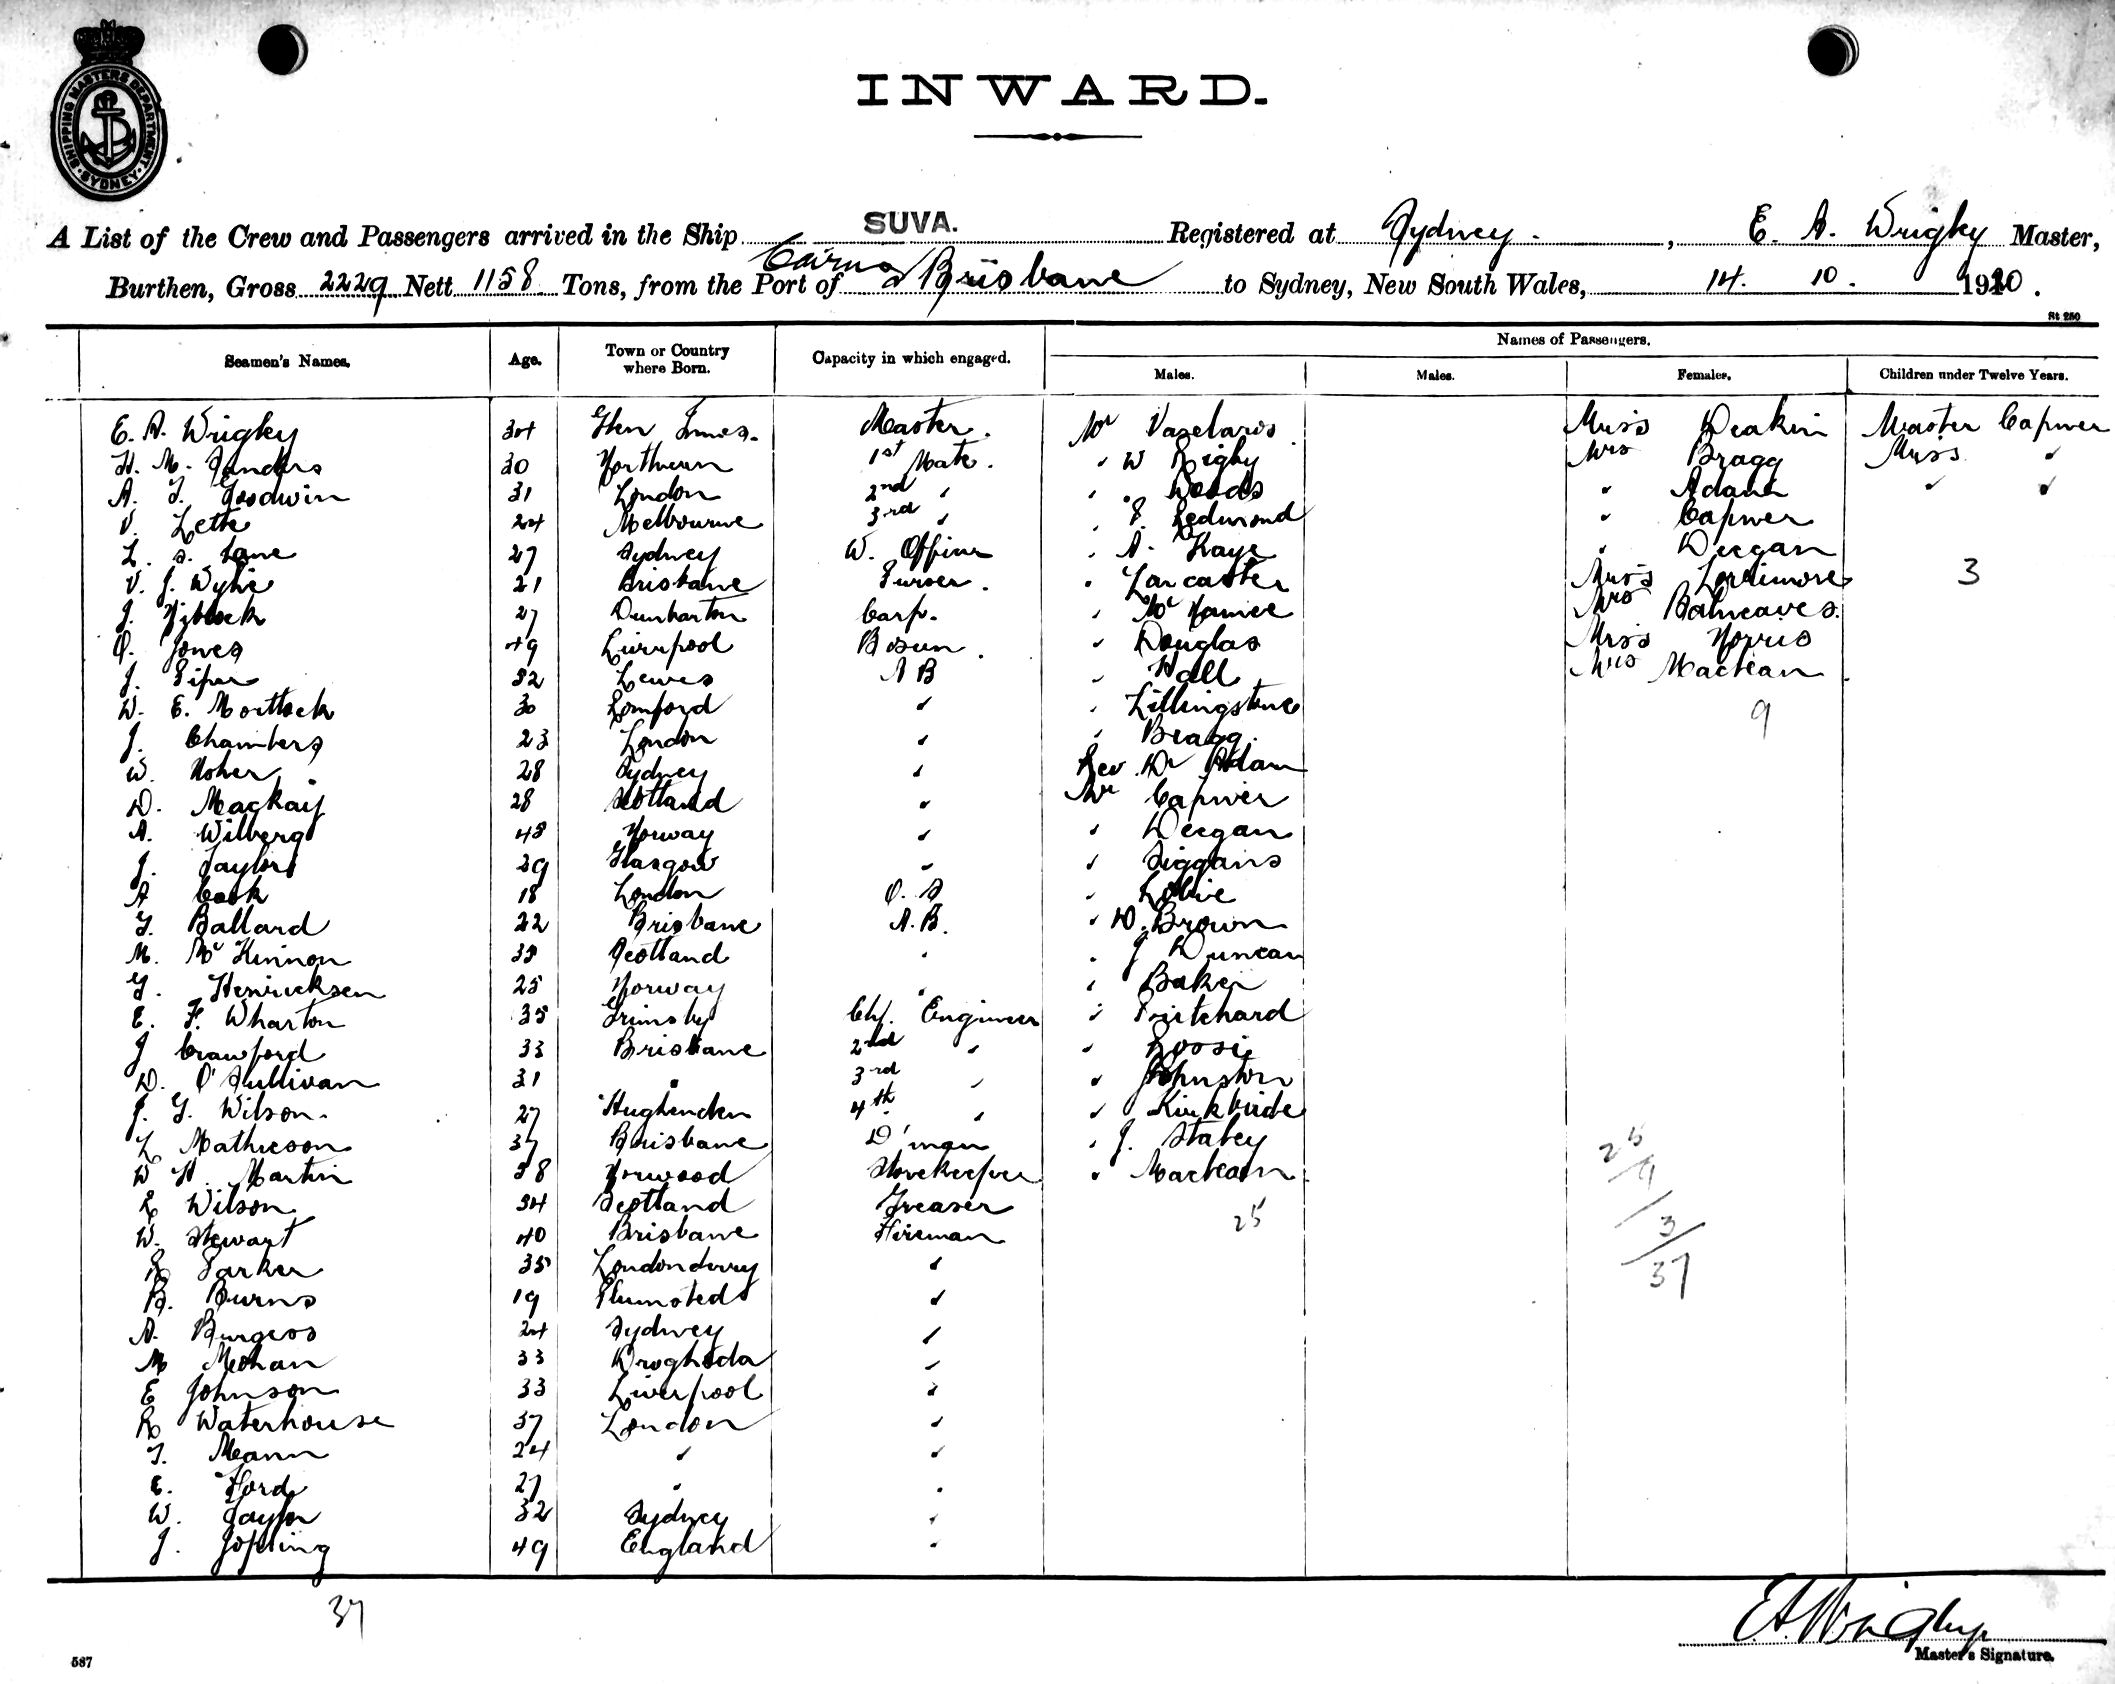 SHIPPING MASTERS DEPARTMENT
SYDNEY
INWARD.
A List of the Crew and Passengers arrived in the Ship SUVA. Registered at Sydney. , E. A. Wrigley Master,
Burthen, Gross 2229 Nett 1158 Tons, from the Port of Cairns & Brisbane to Sydney, New South Wales, 14. 10. 1910.
St 250
Seamen's Names. Age. Town or Country where Born. Capacity in which engaged. Names of Passengers.
Males. Males. Females. Children under Twelve Years.
E. A. Wrigley 34 Glen Innes. Master. Mr Vazelaros Miss Deakin Master Capner
H. M. Sanders 30 Northven 1st Mate. " W Rigby Mrs Bragg Miss "
A. T. Goodwin 31 London 2nd " " Woods " Adam " "
V. Lette 24 Melbourne 3rd " " P. Redmond " Capner
L. S. Lane 27 Sydney W. Officer " A. Kaye " Deegan
V. J. Wylie 21 Brisbane Purser. " Lancaster Miss Lorrimore 3
J. 27 Dunbarton Carp. " McNamee Mrs Balneaves
O. Jones 49 Liverpool Bosun. " Douglas Miss Norris
J. Piper 52 Lewes A B " Hall Mrs Maclean
W. E. Mortlock 30 Romford " " Lillingstone 9
J. Chambers 23 London " " Bragg.
W. Usher 28 Sydney " Rev. Dr Adam
D. Mackay 28 Scotland " Mr Capner
A. Wilberg 48 Norway " " Deegan
J. Taylor 29 Glasgow " " Siggans
A Cook 18 London O. S "
G. Ballard 22 Brisbane A.B. " D. Brown
M. McKinnon 38 Scotland " " J Duncan
G. Henricksen 25 Norway " " Baker
E. F. Wharton 38 Grimsby Chf. Engineer " Pritchard
J Crawford 33 Brisbane 2nd " " Rossi
D. O'Sullivan 31 " 3rd " " Johnston
J. G. Wilson. 27 Hughenden 4th " " Kirkbride
L Mathieson 37 Brisbane D'man " J. Stabey
W H. Martin 38 Norwood Storekeeper " Maclean
R Wilson 34 Scotland Greaser 25
W. Stewart 40 Brisbane Fireman
R Parker 38 Londonderry "
B. Burns 19 Plumsted "
A. Burgess 24 Sydney "
M Meehan 33 Drogheda "
E Johnson 33 Liverpool "
R Waterhouse 37 London "
T. Mann 24 " "
E. Ford 27 " "
W. Taylor 32 Sydney "
J. Jopling 49 England "
25
9
3
37
37
E A Wrigley
Master's Signature.
587